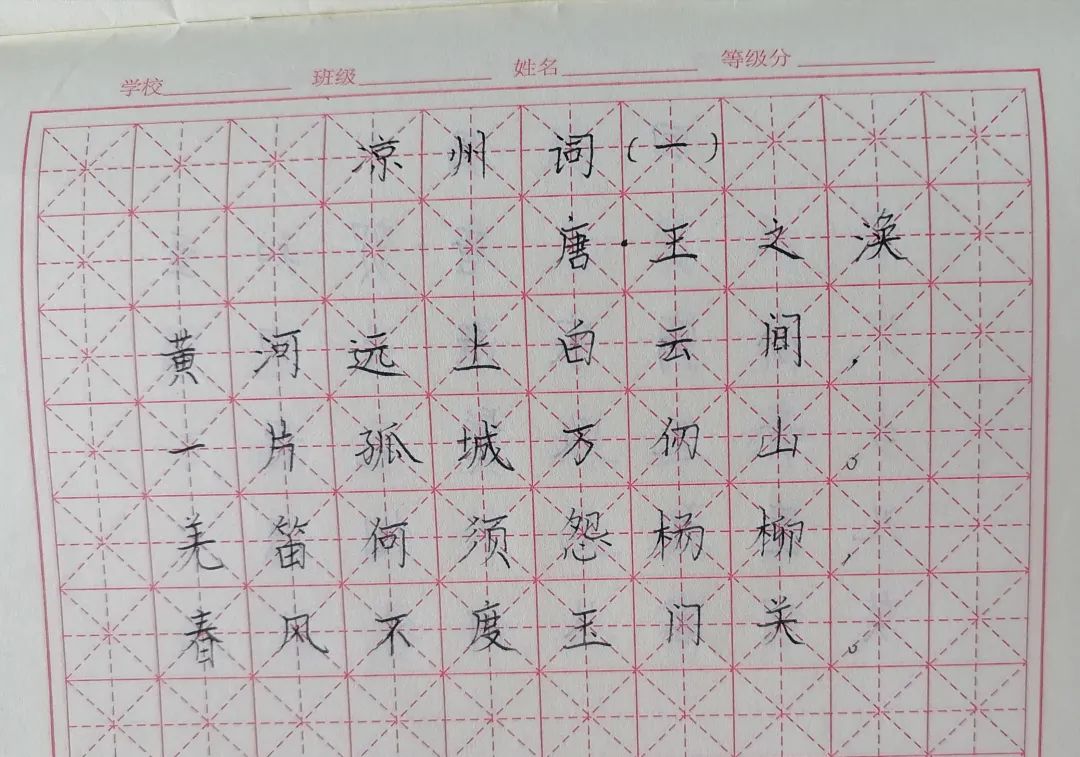 学校 班级 姓名 等级分
凉州词（一）
唐·王之涣
黄河远上白云间，
一片孤城万仞山。
羌笛何须怨杨柳，
春风不度玉门关。